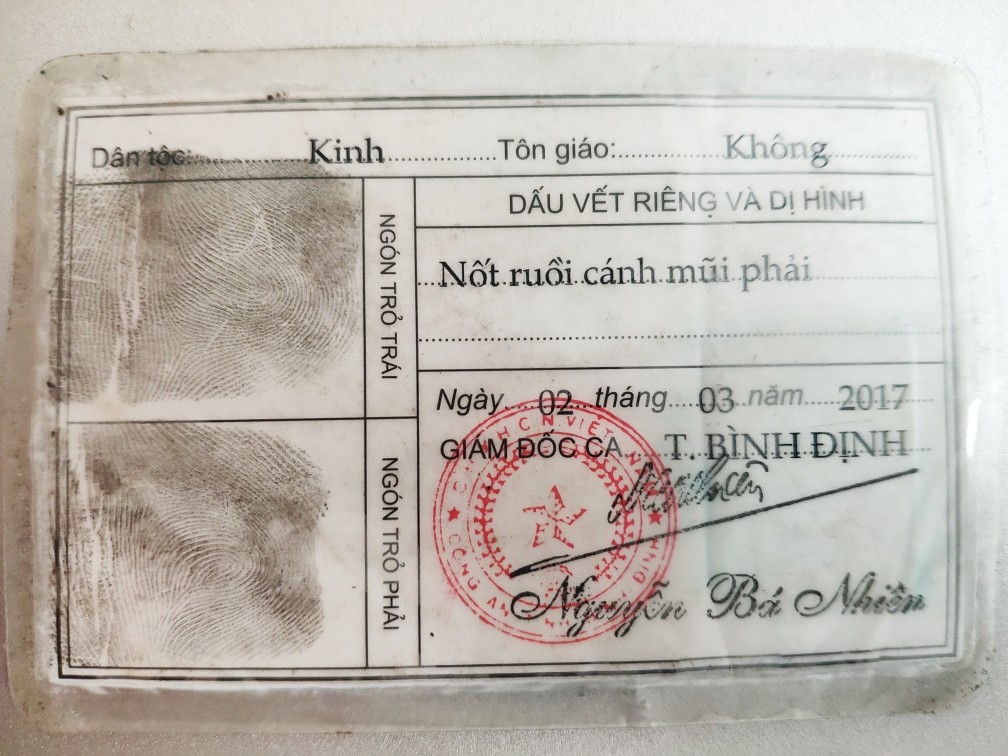 Dân tộc: Kinh Tôn giáo: Không
NGÓN TRỎ TRÁI
DẤU VẾT RIÊNG VÀ DỊ HÌNH
Nốt ruồi cánh mũi phải
NGÓN TRỎ PHẢI
Ngày 02 tháng 03 năm 2017
GIÁM ĐỐC CA T. BÌNH ĐỊNH
Nguyễn Bá Nhiên